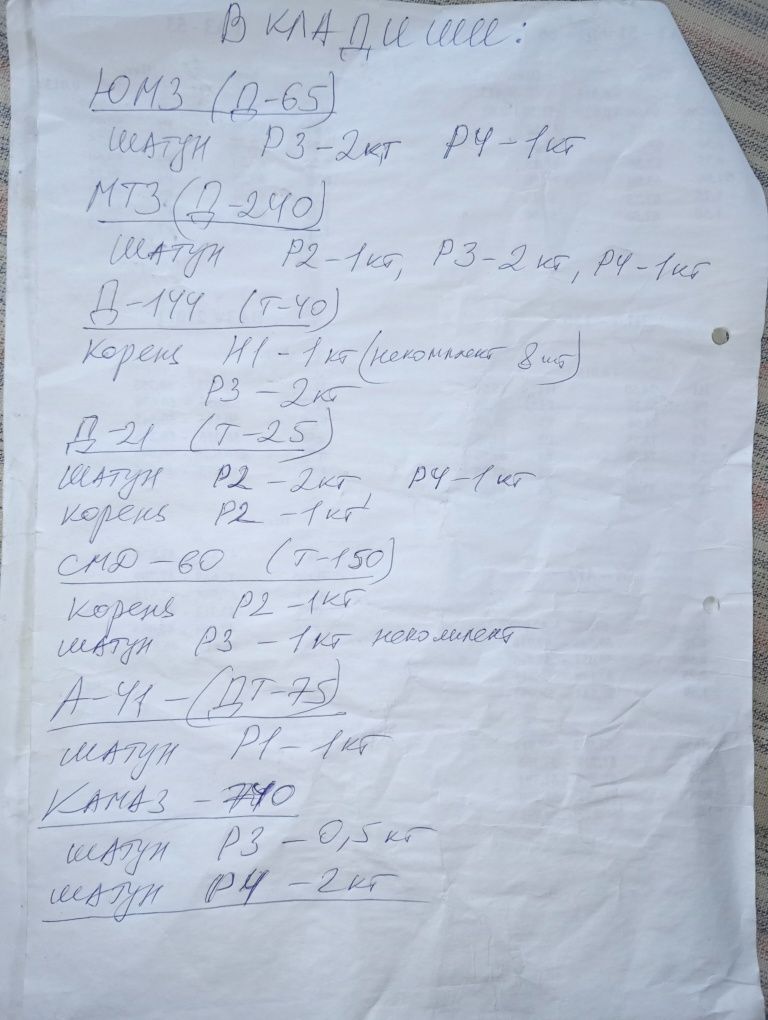 ВКЛАДИШИ:
ЮМЗ (Д-65)
ШАТУН Р3-2кт Р4-1кт
МТЗ (Д-240)
ШАТУН Р2-1кт, Р3-2кт, Р4-1кт
Д-144 (Т-40)
Корень Н1-1кт (некомплект 8шт)
Р3-2кт
Д-21 (Т-25)
ШАТУН Р2-2кт Р4-1кт
Корень Р2-1кт
СМД-60 (Т-150)
Корень Р2-1кт
ШАТУН Р3-1кт некомплект
А-41-(ДТ-75)
ШАТУН Р1-1кт
КАМАЗ-740
ШАТУН Р3-0,5кт
ШАТУН Р4-2кт